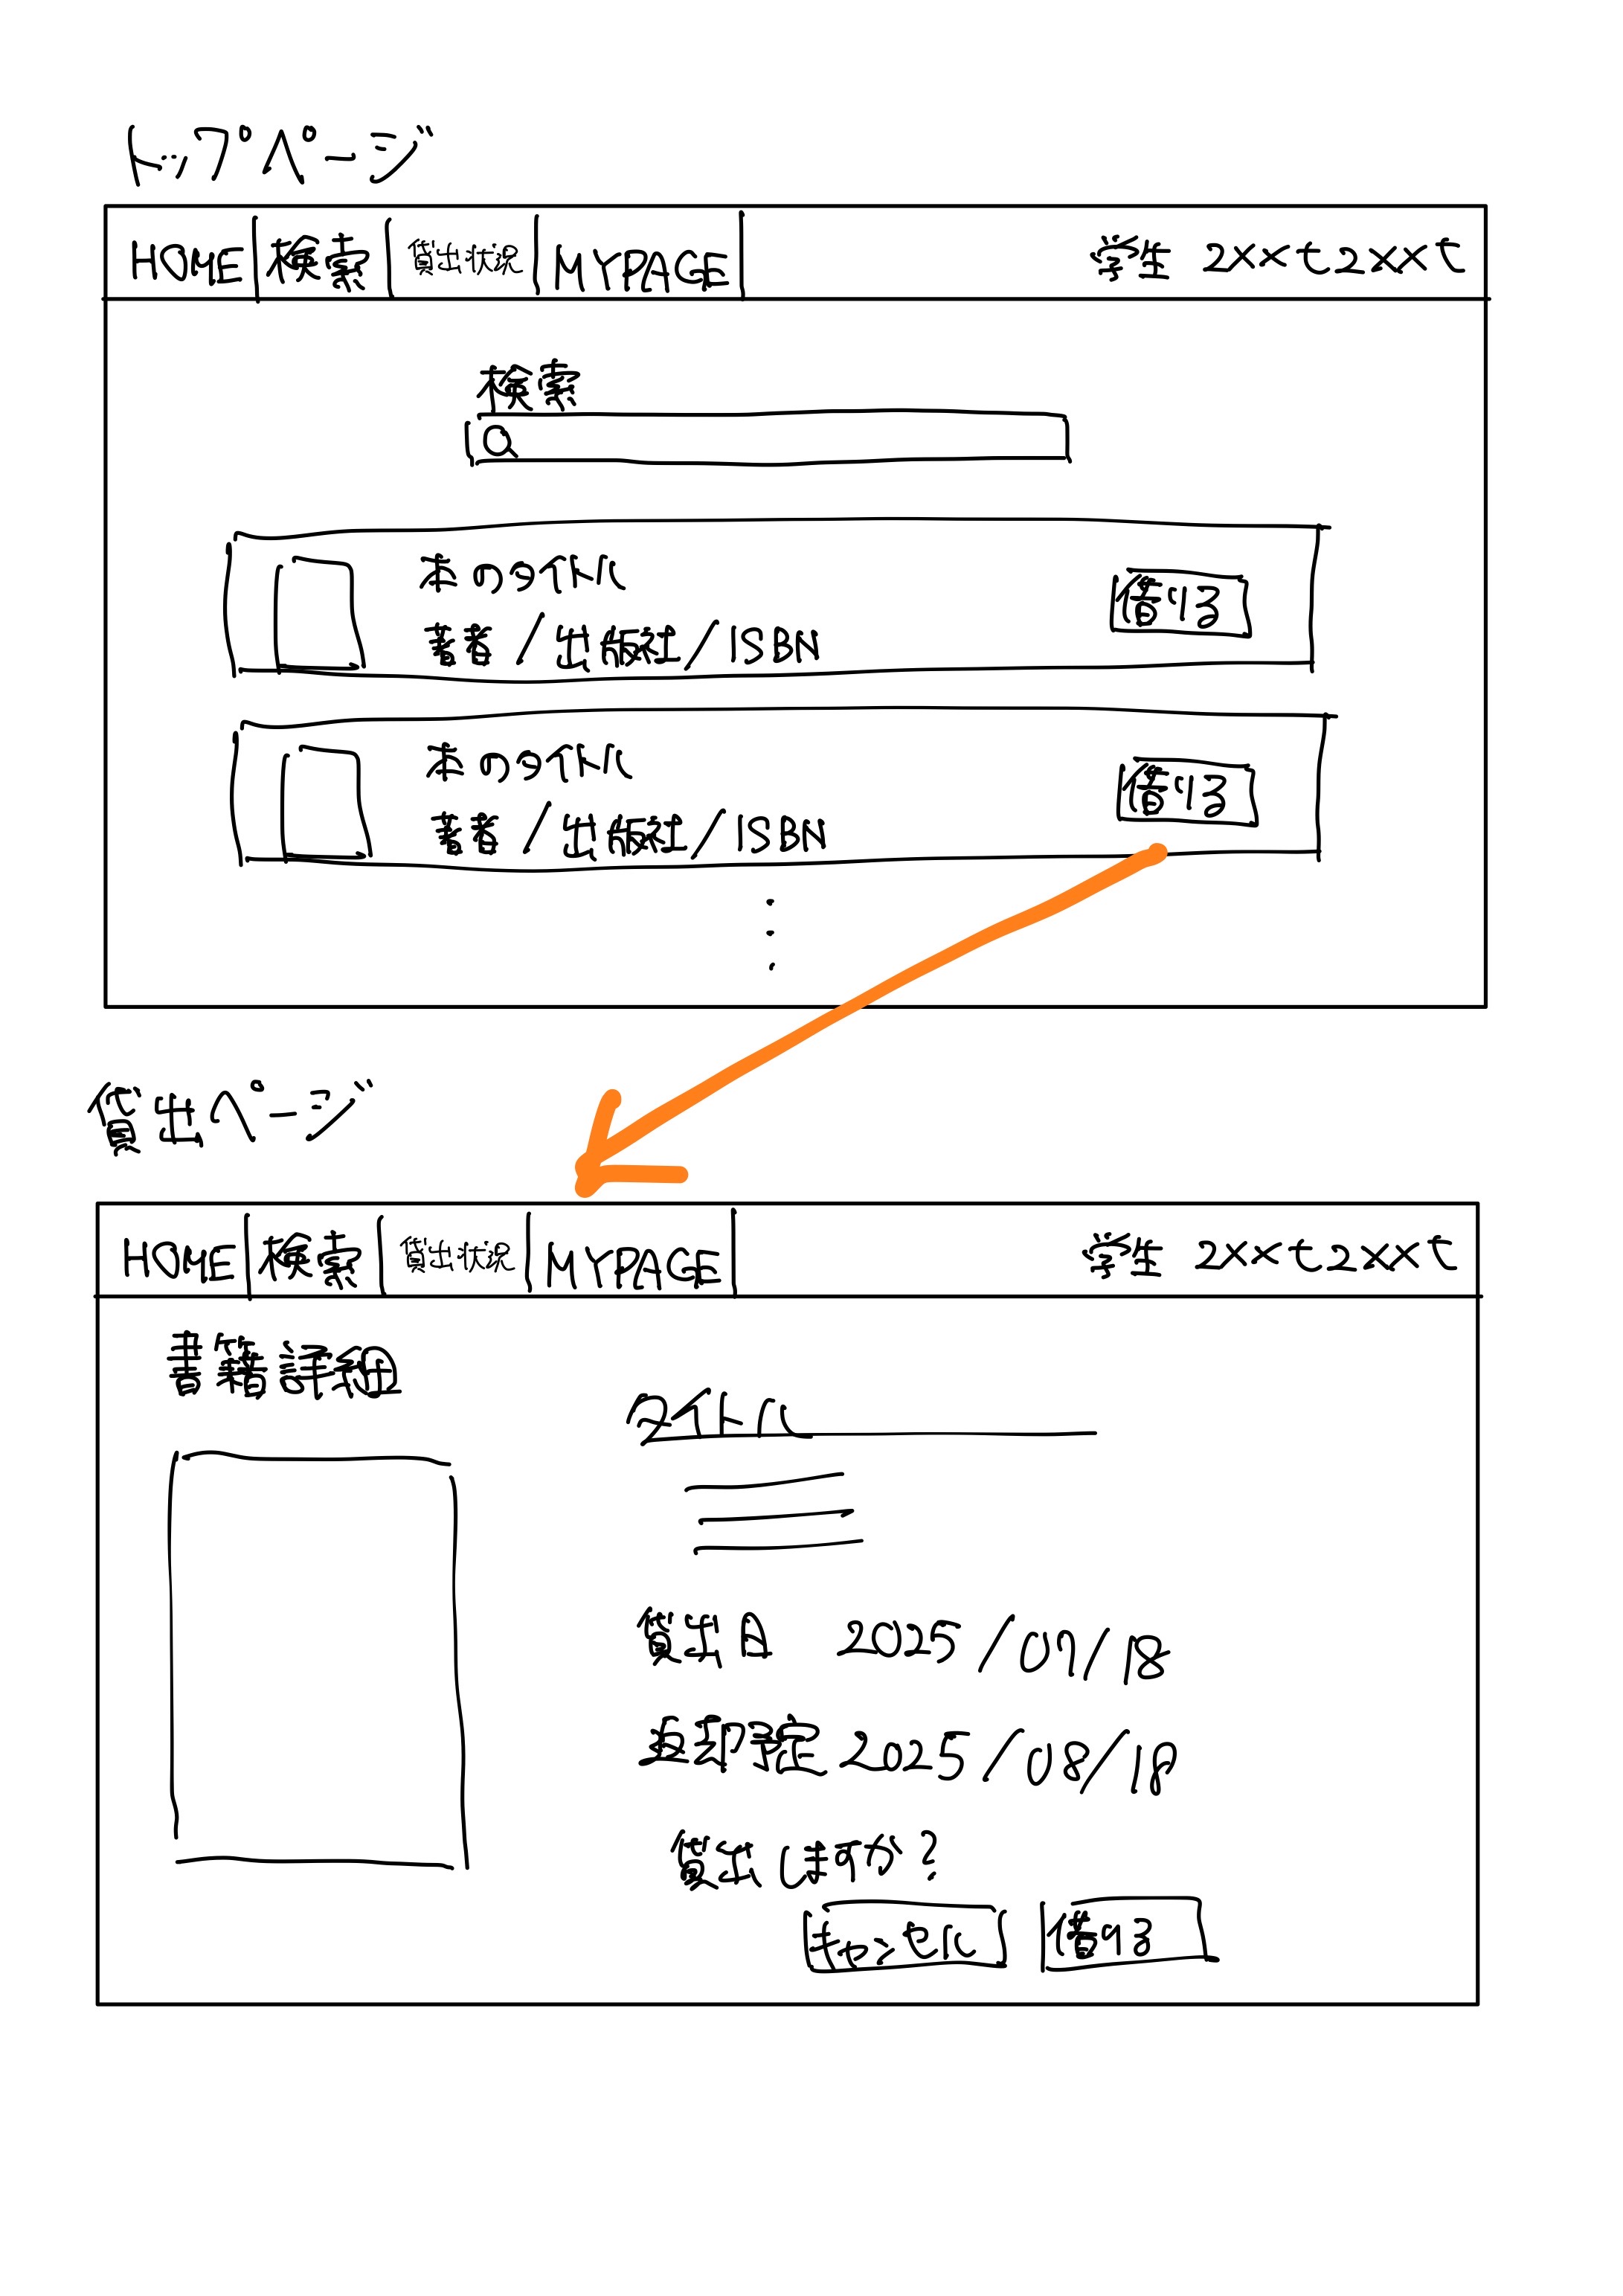 トップページ
HOME 検索 貸出状況 MYPAGE 学生 2××t2××t
検索
本のタイトル
著者/出版社/ISBN
借りる
本のタイトル
著者/出版社/ISBN
借りる
貸出ページ
HOME 検索 貸出状況 MYPAGE 学生 2××t2××t
書籍詳細
タイトル
貸出日 2025/07/18
返却予定 2025/08/18
貸出しますか?
キャンセル 借りる